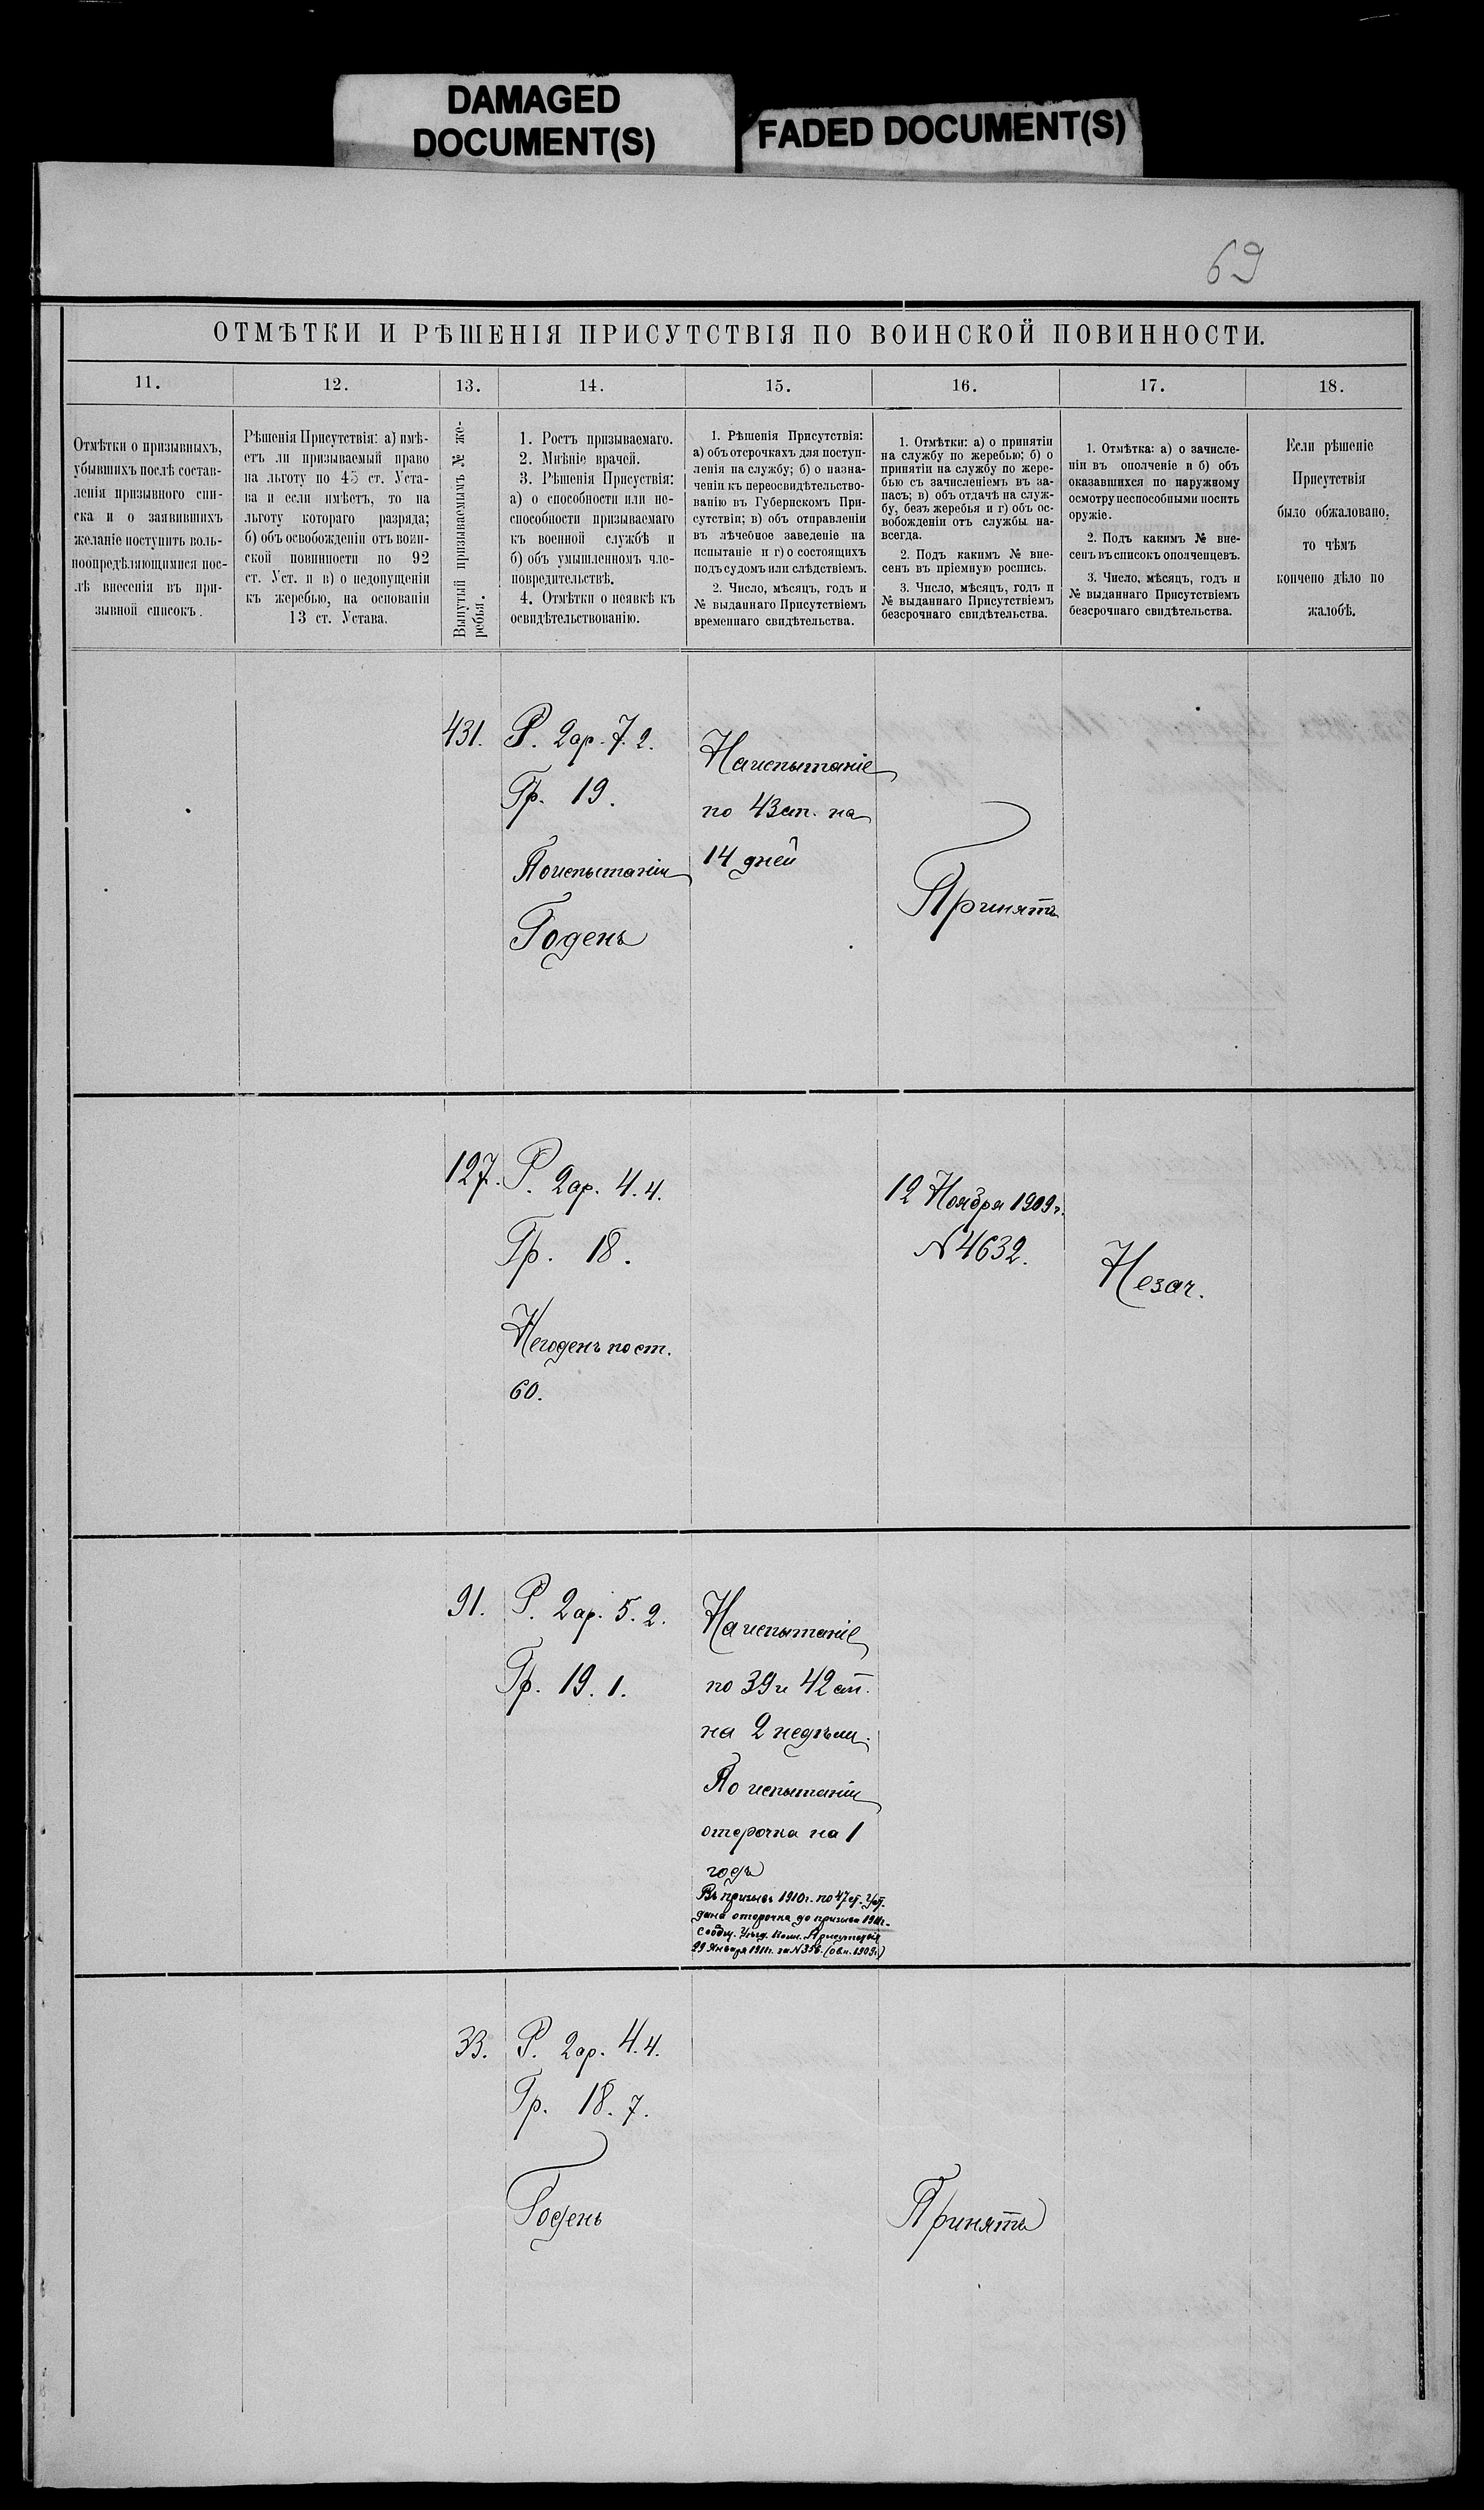 DAMAGED
DOCUMENT(S)
FADED DOCUMENT(S)
69
ОТМѢТКИ И РѢШЕНІЯ ПРИСУТСТВІЯ ПО ВОИНСКОЙ ПОВИННОСТИ.
11.
12.
13.
14.
15.
16.
17.
18.
Отмѣтки о призывныхъ,
убывшихъ послѣ состав-
ленія призывного спи-
ска и о заявившихъ
желаніе поступить воль-
ноопредѣляющимися пос-
лѣ внесенія въ при-
зывной списокъ.
Рѣшенія Присутствія: а) имѣ-
етъ ли призываемый право
на льготу по 45 ст. Уста-
ва и если имѣетъ, то на
льготу котораго разряда;
б) объ освобожденіи отъ воин-
ской повинности по 92
ст. Уст. и в) о недопущеніи
къ жеребью, на основаніи
13 ст. Устава.
Вынутый призываемымъ № же-
ребья.
1. Ростъ призываемаго.
2. Мнѣніе врачей.
3. Рѣшенія Присуствія:
а) о способности или не-
способности призываемаго
къ военной службѣ и
б) объ умышленномъ чле-
новредительствѣ.
4. Отмѣтки о неявкѣ къ
освидѣтельствованію.
1. Рѣшенія Присутствія:
а) объ отсрочкахъ для поступ-
ленія на службу; б) о назна-
ченіи къ переосвидѣтельство-
ванію въ Губернскомъ При-
сутствіи; в) объ отправленіи
въ лѣчебное заведеніе на
испытаніе и г) о состоящихъ
подъ судомъ или слѣдствіемъ.
2. Число, мѣсяцъ, годъ и
№ выданнаго Присутствіемъ
временнаго свидѣтельства.
1. Отмѣтки: а) о принятіи
на службу по жеребью; б) о
принятіи на службу по жере-
бью съ зачисленіемъ въ за-
пасъ; в) объ отдачѣ на служ-
бу, безъ жеребья и г) объ ос-
вобожденіи отъ службы на-
всегда.
2. Подъ какимъ № вне-
сенъ въ пріемную роспись.
3. Число, мѣсяцъ, годъ и
№ выданнаго Присутствіемъ
безсрочнаго свидѣтельства.
1. Отмѣтка: а) о зачисле-
ніи въ ополченіе и б) объ
оказавшихся по наружному
осмотру неспособными носить
оружіе.
2. Подъ какимъ № вне-
сенъ въ списокъ ополченцевъ.
3. Число, мѣсяцъ, годъ и
№ выданнаго Присутствіемъ
безсрочнаго свидѣтельства.
Если рѣшеніе
Присутствія
было обжаловано,
то чѣмъ
кончено дѣло по
жалобѣ.
431.
Р. 2 ар. 7. 2.
Гр. 19.
По испытаніи
Годенъ
На испытаніе
по 43 ст. на
14 дней
Принятъ
127.
Р. 2 ар. 4. 4.
Гр. 18.
Негоденъ по ст.
60.
12 Ноября 1909 г.
N 4632.
Незач.
91.
Р. 2 ар. 5. 2.
Гр. 19. 1.
На испытаніе
по 39 и 42 ст.
на 2 недѣли.
По испытаніи
отсрочка на 1
годъ
Въ призывъ 1910 г. по 47 ст.
дана отсрочка до призыва 1911 г.
сообщ. Уѣзд. Воин. Присутствія
29 Января 1911 г. за N 356.
33.
Р. 2 ар. 4. 4.
Гр. 18. 7.
Годенъ
Принятъ